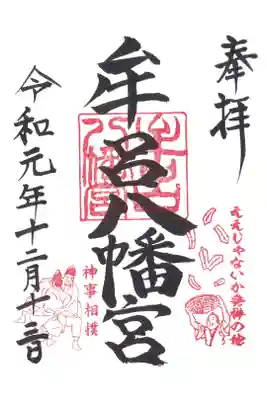 奉拝
ええじゃないか発祥の地
牟呂八幡宮
神事相撲
令和元年十二月十三日